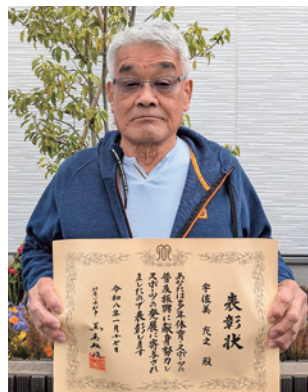 表彰状
宇佐美 充之 殿
あなたは多年体育・スポーツの
普及振興に献身努力し
スポーツの発展に寄与され
ましたので表彰します
令和八年一月二十七日